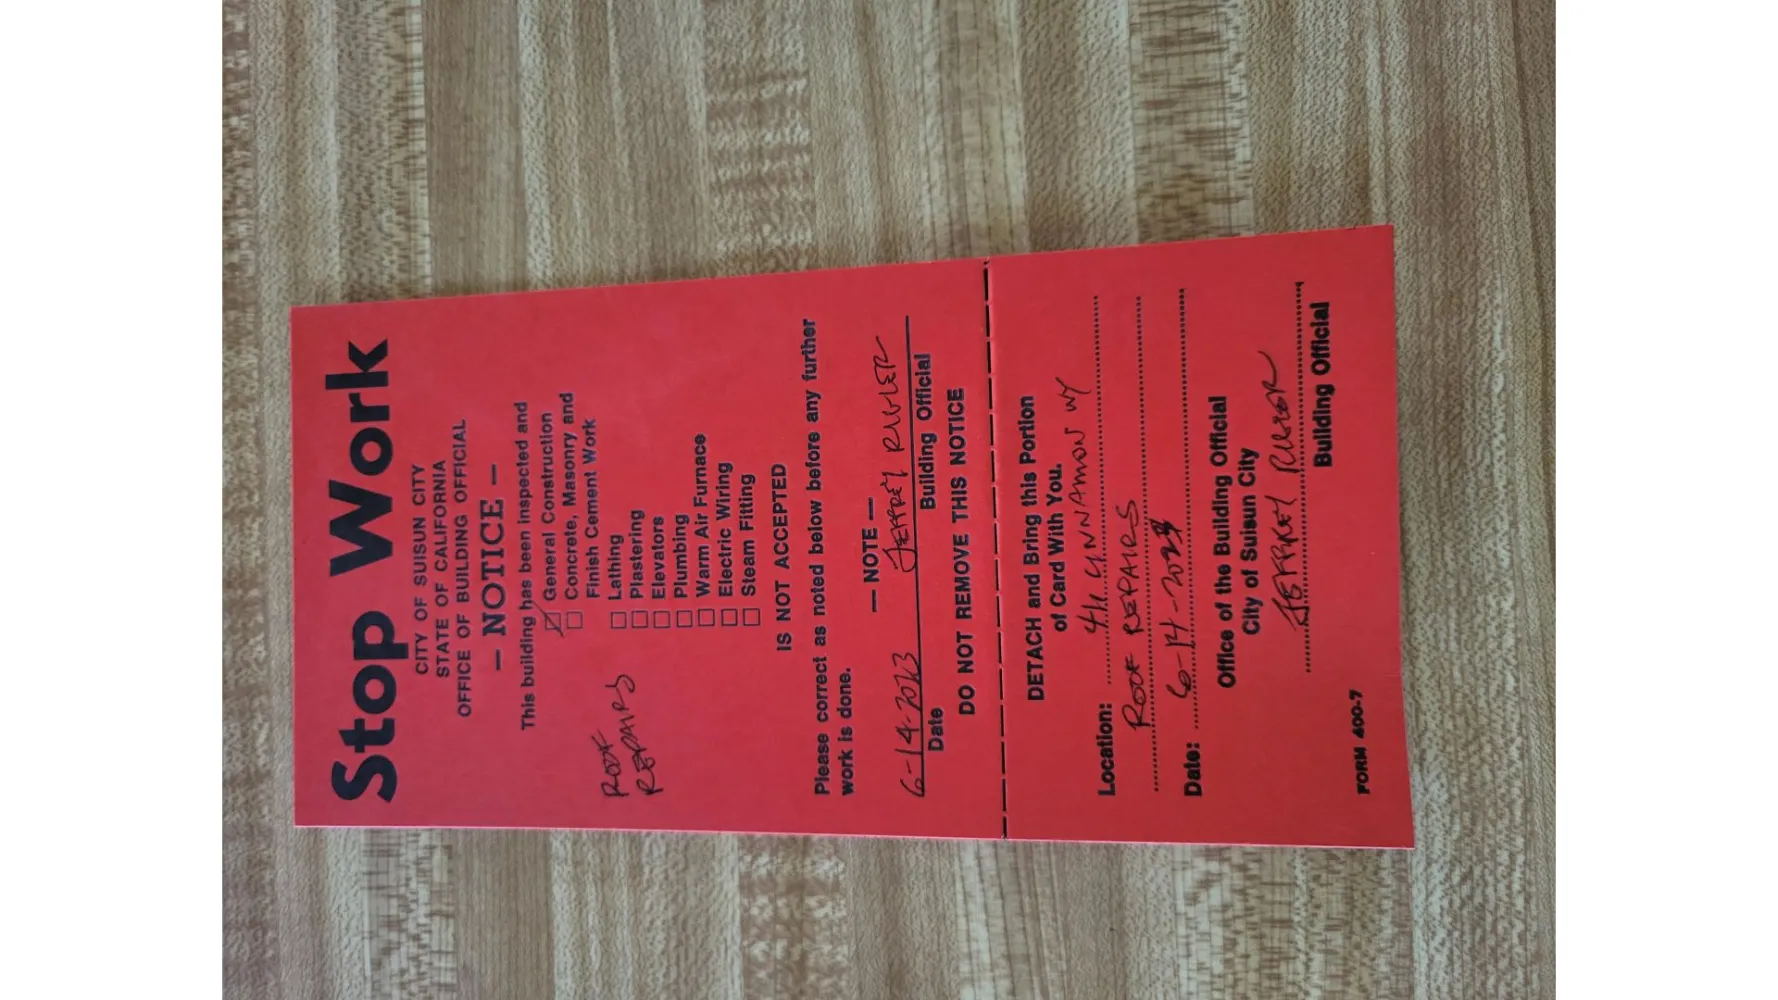 Stop Work
CITY OF SUISUN CITY
STATE OF CALIFORNIA
OFFICE OF BUILDING OFFICIAL
— NOTICE —
This building has been inspected and
General Construction
Concrete, Masonry and
Finish Cement Work
Lathing
Plastering
Elevators
Plumbing
Warm Air Furnace
Electric Wiring
Steam Fitting
ROOF
REPAIRS
IS NOT ACCEPTED
Please correct as noted below before any further
work is done.
— NOTE —
6-14-2023 JEFFREY
Date Building Official
DO NOT REMOVE THIS NOTICE
DETACH and Bring this Portion
of Card With You.
Location: CINNAMON WY
ROOF REPAIRS
Date: 6-14-2023
Office of the Building Official
City of Suisun City
JEFFREY
Building Official
FORM 400-7